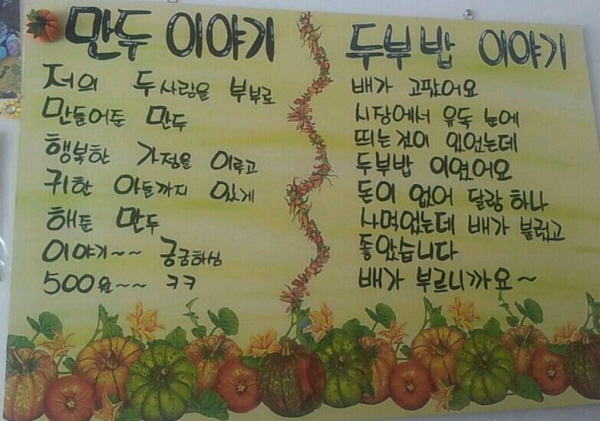 만두 이야기
저의 두사람을 부부로
만들어준 만두
행복한 가정을 이루고
귀한 아들까지 있게
해준 만두
이야기~~ 궁금하심
500원~~ ㅋㅋ
두부밥 이야기
배가 고팠어요
시장에서 유독 눈에
띄는것이 있었는데
두부밥 이였어요
돈이 없어 달랑 하나
사먹었는데 배가 불렀고
좋았습니다
배가 부르니까요~